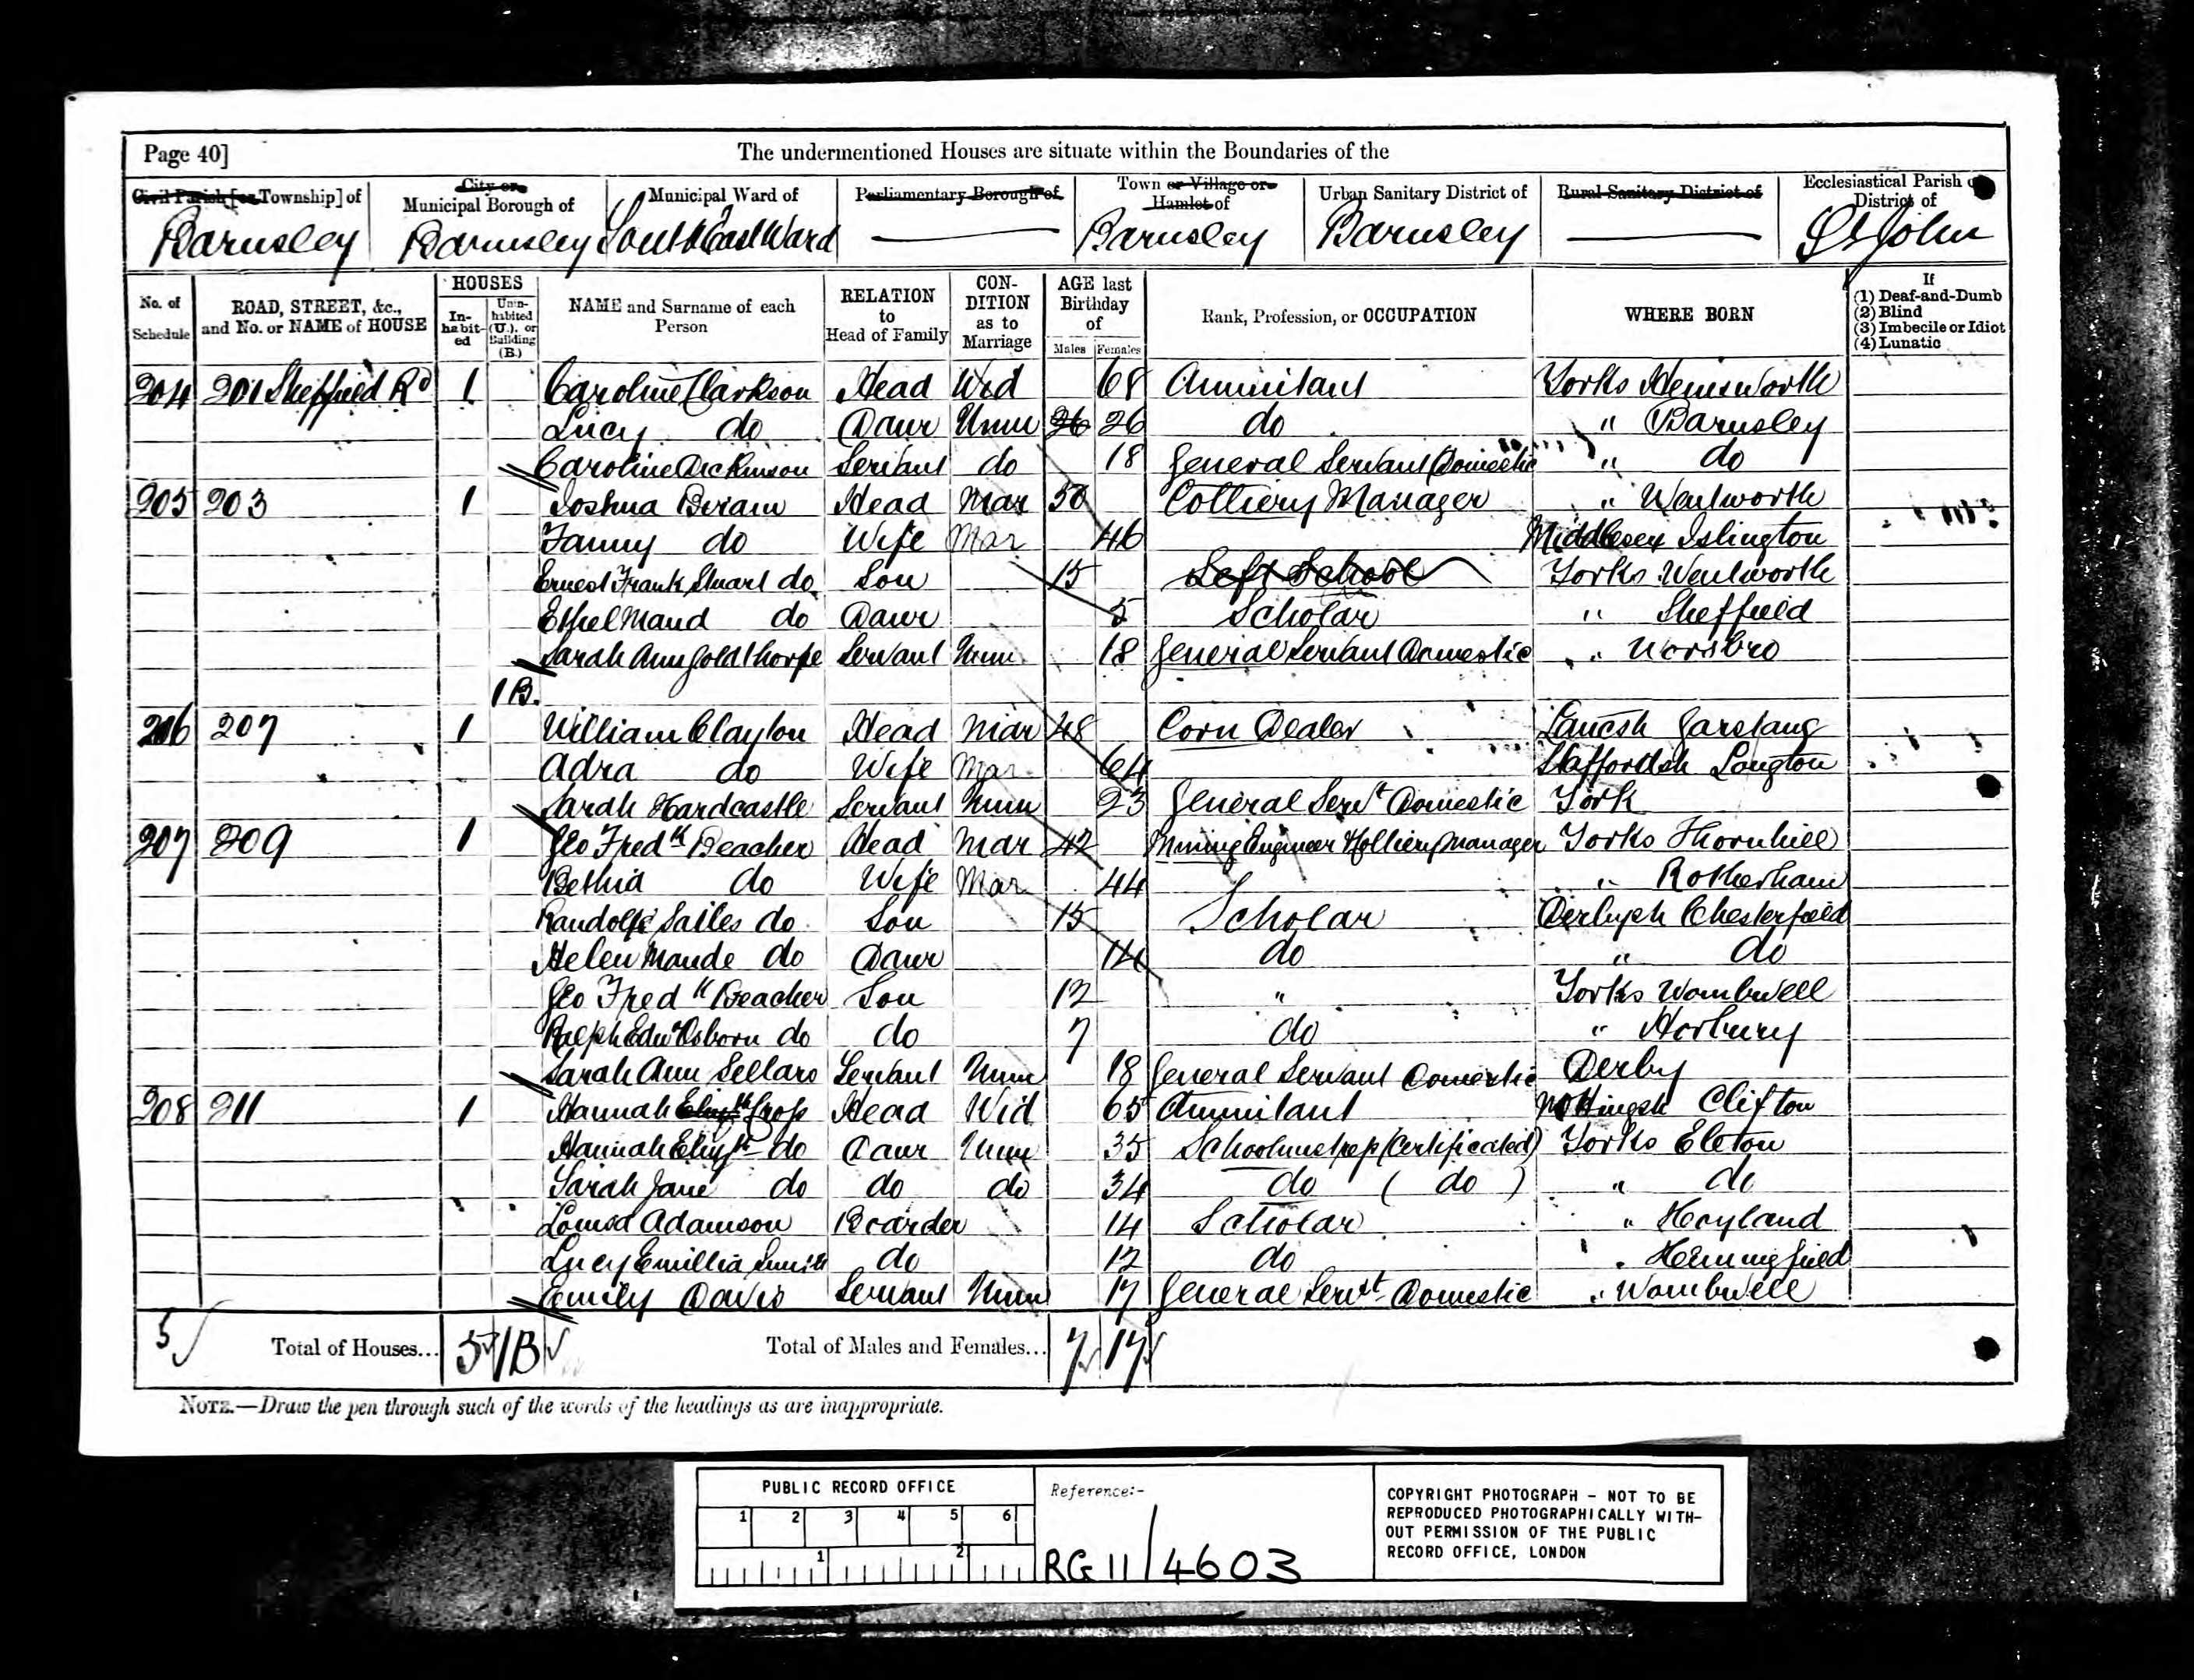 Page 40]
The undermentioned Houses are situate within the Boundaries of the
Civil Parish [or Township] of
City or Municipal Borough of
Municipal Ward of
Parliamentary Borough of
Town or Village or Hamlet of
Urban Sanitary District of
Rural Sanitary District of
Ecclesiastical Parish or District of
Barnsley Barnsley South East Ward Barnsley Barnsley St John
No. of Schedule
ROAD, STREET, &c., and No. or NAME of HOUSE
HOUSES
In-habit-ed
Unin-habited (U.), or Building (B.)
NAME and Surname of each Person
RELATION to Head of Family
CON-DITION as to Marriage
AGE last Birthday of
Males Females
Rank, Profession, or OCCUPATION
WHERE BORN
If
(1) Deaf-and-Dumb
(2) Blind
(3) Imbecile or Idiot
(4) Lunatic
204 201 Sheffield Rd 1 Caroline Clarkson Head Wid 68 Annuitant Yorks Hemsworth
Lucy do Daur Unm 26 26 do " Barnsley
Caroline Dickinson Servant do 18 General Servant Domestic " do
205 203 1 Joshua Biram Head Mar 50 Colliery Manager " Wentworth
Fanny do Wife Mar 46 Middlesex Islington
Ernest Frank Stuart do Son 15 Left School Yorks Wentworth
Ethel Maud do Daur 5 Scholar " Sheffield
Sarah Ann Goldthorpe Servant Unm 18 General Servant Domestic " Worsbro
1 B.
206 207 1 William Clayton Head Mar 48 Corn Dealer Lancsh Garstang
Adra do Wife Mar 64 Staffordsh Longton
Sarah Hardcastle Servant Unm 23 General Servt Domestic York
207 209 1 Geo Fredk Beacher Head Mar 42 Mining Engineer & Colliery Manager Yorks Thornhill
Bethia do Wife Mar 44 " Rotherham
Randolph Sailes do Son 15 Scholar Derbysh Chesterfield
Helen Maude do Daur 14 do " do
Geo Fredk Beacher Son 12 " Yorks Wombwell
Ralph Edwd Osborn do do 7 do " Horbury
Sarah Ann Sellars Servant Unm 18 General Servant Domestic Derby
208 211 1 Hannah Elizth Cross Head Wid 65 Annuitant Nottingsh Clifton
Hannah Elizth do Daur Unm 35 Schoolmistress (Certificated) Yorks
Sarah Jane do do do 34 do ( do ) " do
Louisa Adamson Boarder 14 Scholar " Hoyland
Lucy Emillia Smith do 12 do " Hemingfield
Emily Davis Servant Unm 17 General Servt Domestic " Wombwell
5 Total of Houses... 5 1B Total of Males and Females... 7 17
NOTE.—Draw the pen through such of the words of the headings as are inappropriate.
PUBLIC RECORD OFFICE
1 2 3 4 5 6
1 2
Reference:-
RG 11/4603
COPYRIGHT PHOTOGRAPH - NOT TO BE
REPRODUCED PHOTOGRAPHICALLY WITH-
OUT PERMISSION OF THE PUBLIC
RECORD OFFICE, LONDON